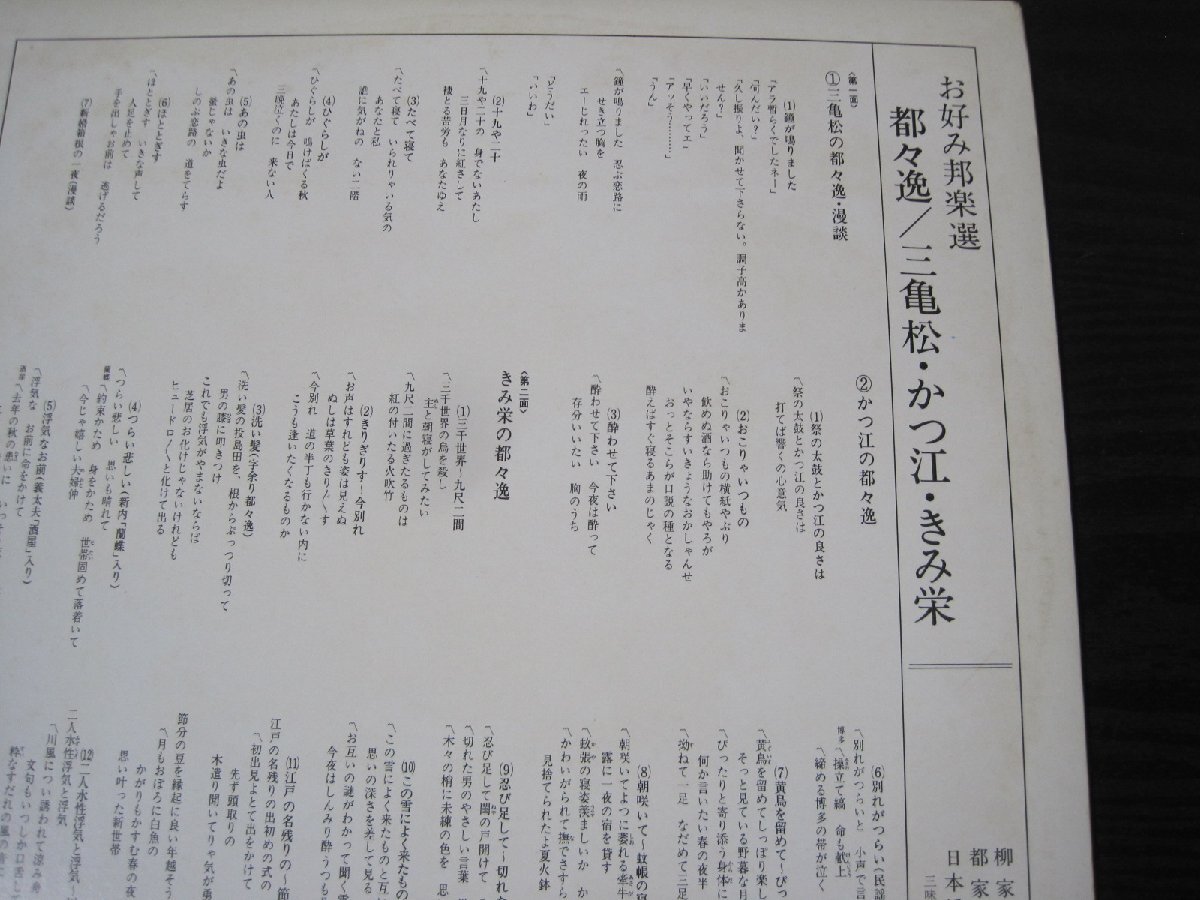 お好み邦楽選
都々逸／三亀松・かつ江・きみ栄
柳家
都家
日本
三味
〈第一面〉
①三亀松の都々逸・漫談
(1)鐘が鳴りました
「アラ暫らくでしたネー」
「何んだい？」
「久し振りよ、聞かせて下さらない。調子高かありま
せん？」
「いいだろう」
「早くやってェ」
「アッそう………」
「うん」
〽鐘が鳴りました　忍ぶ恋路に
せき立つ胸を
エーじれったい　夜の雨
「どうだい」
「いいわ」
(2)十九や二十
〽十九や二十の　身でないあたし
三日月ならに紅さして
棲とる苦労も　あなたゆえ
(3)たべて寝て
〽たべて寝て　いられりゃいる気の
あなたと私
誰に気がねの　ない二階
(4)ひぐらしが
〽ひぐらしが　鳴けばくる秋
あたしは今日で
三晩泣くのに　来ない人
(5)あの虫は
〽あの虫は　いきな虫だよ
螢じゃないか
しのぶ恋路の　道をてらす
(6)ほととぎす
〽ほととぎす　いきな声して
人足を止めて
手を出しゃお前は　逃げるだろう
(7)新婚箱根の一夜(漫談)
②かつ江の都々逸
(1)祭の太鼓とかつ江の良さは
〽祭の太鼓とかつ江の良さは
打てば響くの心意気
(2)おこりゃいつもの
〽おこりゃいつもの横紙やぶり
飲めぬ酒なら助けてもやろが
いやならすいきょうなおかしゃんせ
おっとそこらが口説の種となる
酔えばすぐ寝るあまのじゃく
(3)酔わせて下さい
〽酔わせて下さい　今夜は酔って
存分いいたい　胸のうち
〈第二面〉
きみ栄の都々逸
(1)三千世界～九尺二間
〽三千世界の烏を殺し
主と朝寝がしてみたい
〽九尺二間に過ぎたるものは
紅の付いたる火吹竹
(2)きりぎりす～今別れ
〽お声はすれども姿は見えぬ
ぬしは草葉のきりぎりす
〽今別れ　道の半丁も行かない内に
こうも逢いたくなるものか
(3)洗い髪(字余り都々逸)
〽洗い髪の投島田を　根からぷっつり切って
男の膝に叩きつけ
これでも浮気がやまないならば
芝居のお化けじゃないけれども
ヒュードロ〱と化けて出る
(4)つらい悲しい(新内「蘭蝶」入り)
〽つらい悲しい　思いも晴れて
蘭蝶〽約束かため　身をかため　世帯固めて落着いて
〽今じゃ嬉しい夫婦仲
(5)浮気なお前(義太夫「酒屋」入り)
〽浮気な　お前に命をかけて
酒屋〽去年の秋の患いに　いっそ
(6)別れがつらい(民謡
〽別れがつらいと　小声で言
博多〽操立て縞　命も献上
〽締める博多の帯が泣く
(7)黄鳥を留めて～ぴっ
〽黄鳥を留めてしっぽり楽し
そっと見ている野暮な月
〽ぴったりと寄り添う身体に
何か言いたい春の夜半
〽拗ねて一足　なだめて三足
(8)朝咲いて～蚊帳の寝
〽朝咲いてよつに萎れる牽牛
露に一夜の宿を貸す
〽蚊張の寝姿羨ましいか　か
〽かわいがられて撫でさすら
見捨てられたよ夏火鉢
(9)忍び足して～切れた
〽忍び足して閨の戸開けて
〽切れた男のやさしい言葉
〽木々の梢に未練の色を　思
(10)この雪によく来たもの
〽この雪によく来たものと互
思いの深さを差して見る
〽お互いの謎がわかって聞く雪
今夜はしんみり酔うつも
(11)江戸の名残りの～節
江戸の名残りの出初めの式の
〽初出見よとて出をかけて
先ず頭取りの
木遣り聞いてりゃ気が勇
節分の豆を縁起に良い年越そう
〽月もおぼろに白魚の
かがりもかすむ春の夜
思い叶った新世帯
(12)二人水性浮気と浮気～
二人水性浮気と浮気
〽川風につい誘われて涼み舟
文句もいつしか口舌し
粋なすだれの風の音に